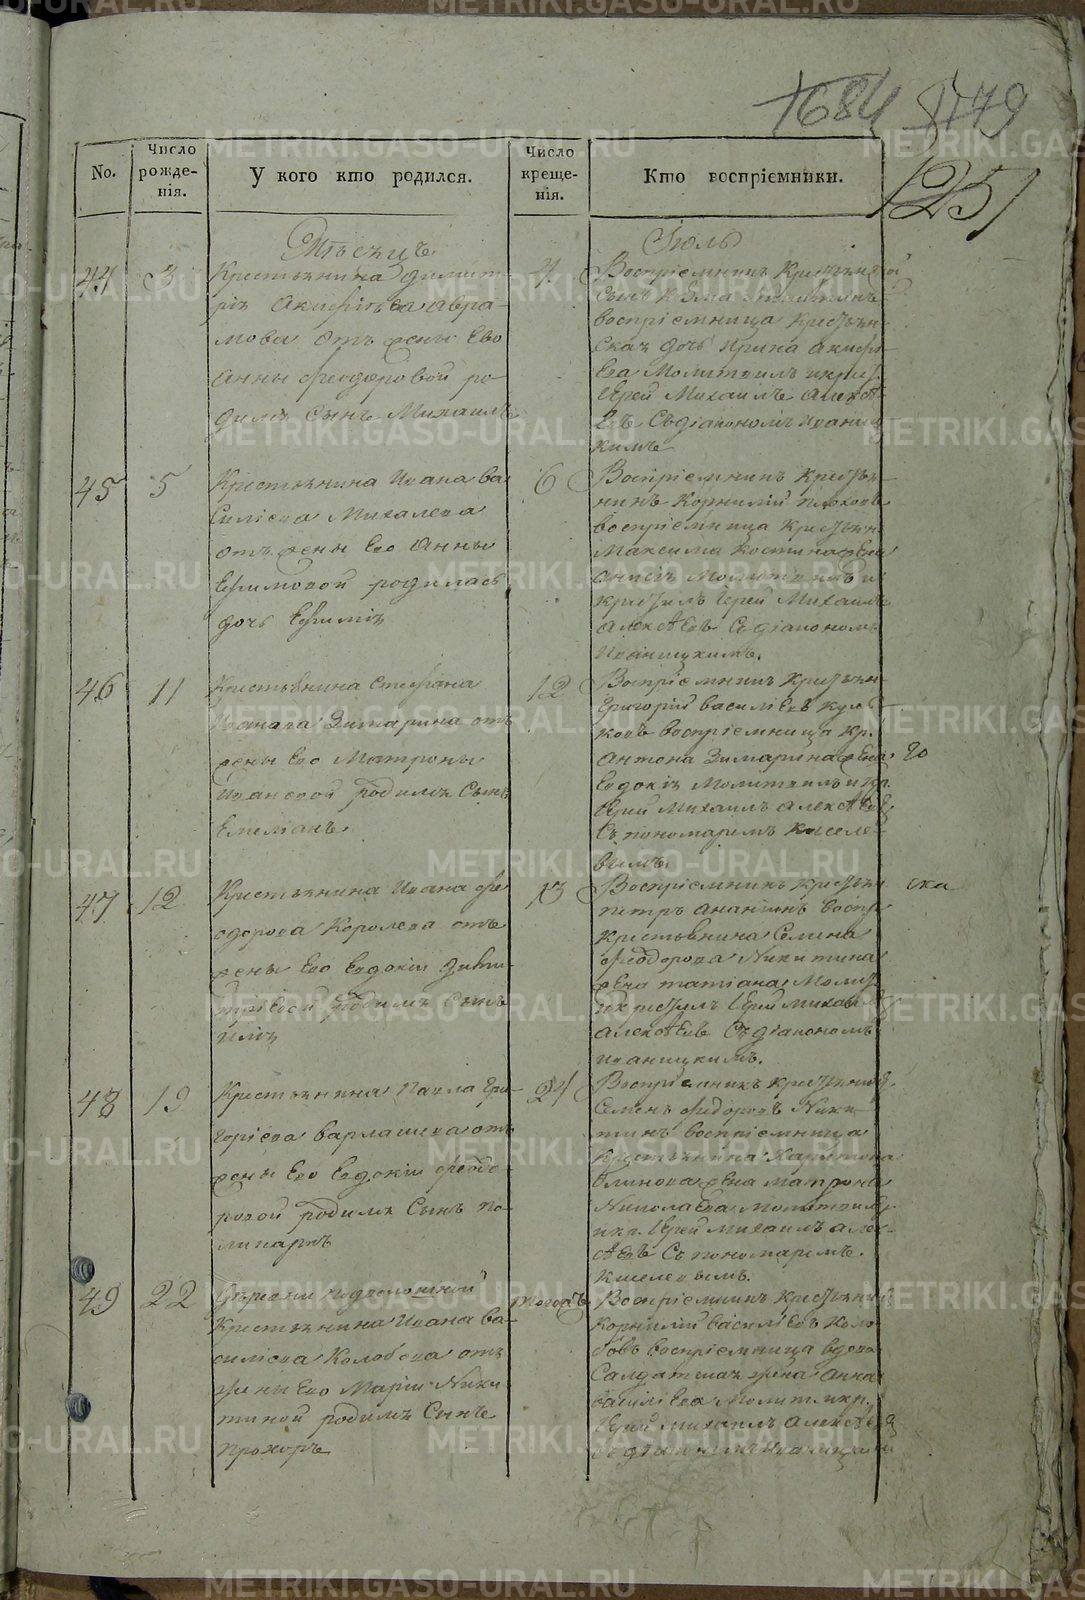 1684 1179
1251
No.
Число рожде-нія.
У кого кто родился.
Число креще-нія.
Кто воспріемники.
Мѣсяцъ
Іюль
44 3
Крестьянина Димит-
рія Акинфіева Авра-
мова отъ жены Его
Анны Феодоровой ро-
дился Сынъ Михаилъ
4
Воспріемникъ
воспріемница Крестьян-
ская дочь Ирина Акинфі-
ева Молитвилъ и крест.
Іерей Михаилъ Алексѣ-
евъ Съ діакономъ Иваниц-
кимъ
45 5
Крестьянина Ивана Ва
силіева Михалева
отъ жены Его Анны
Ефимовой родилась
дочь Ефимія
6
Воспріемникъ Крестья-
нинъ Корнилій
воспріемница Крестьян.
Максима Костина жена
Молитвилъ и
крестилъ Іерей Михаилъ
Алексѣевъ Съ діакономъ
Иваницкимъ.
46 11
Крестьянина Стефана
Зимарина отъ
жены Его Матроны
Ивановой родился Сынъ
Емеліанъ
12
Воспріемникъ Крестьян-
Григорій Василіевъ
ковъ воспріемница Кр.
Антона Зимарина жена Его
Евдокія Молитвилъ и кр.
Іерей Михаилъ Алексѣевъ
Съ пономаремъ Киселе-
вымъ.
47 12
Крестьянина Ивана Фе
одорова Королева отъ
жены Его Евдокіи Дими-
тріевой родился Сынъ
Илія
13
Воспріемникъ Крестьян
Петръ Ананьинъ Воспр.
ска
Крестьянина Семена
Феодорова Никитина
жена Татіана, Молит.
и крестилъ Іерей Михаилъ
Алексѣевъ Съ діакономъ
Иваницкимъ.
48 19
Крестьянина Павла Гри-
горіева Варлашева отъ
жены Его Евдокіи Феодо-
ровой родился Сынъ По-
ликарпъ
24
Воспріемникъ крестьянинъ
Семенъ Федоровъ Ники-
тинъ воспріемница
Крестьянина Харитона
Блинова жена Матрона
Николаева Молитвилъ
и кр. Іерей Михаилъ Алек-
сѣевъ Съ пономаремъ.
Киселевымъ.
49 22
Деревни
Крестьянина Ивана Ва-
силіева Колобова отъ
жены Его Маріи Ники
тиной родился Сынъ
Прохоръ
тогожъ
Воспріемникъ Крестьянинъ
Корнилій Василіевъ Коло-
бовъ воспріемница вдова
Салдатская жена Анна
Василіева Молит. и кр.
Іерей Михаилъ Алексѣевъ
Съ діакономъ Иваницкимъ
METRIKI.GASO-URAL.RU